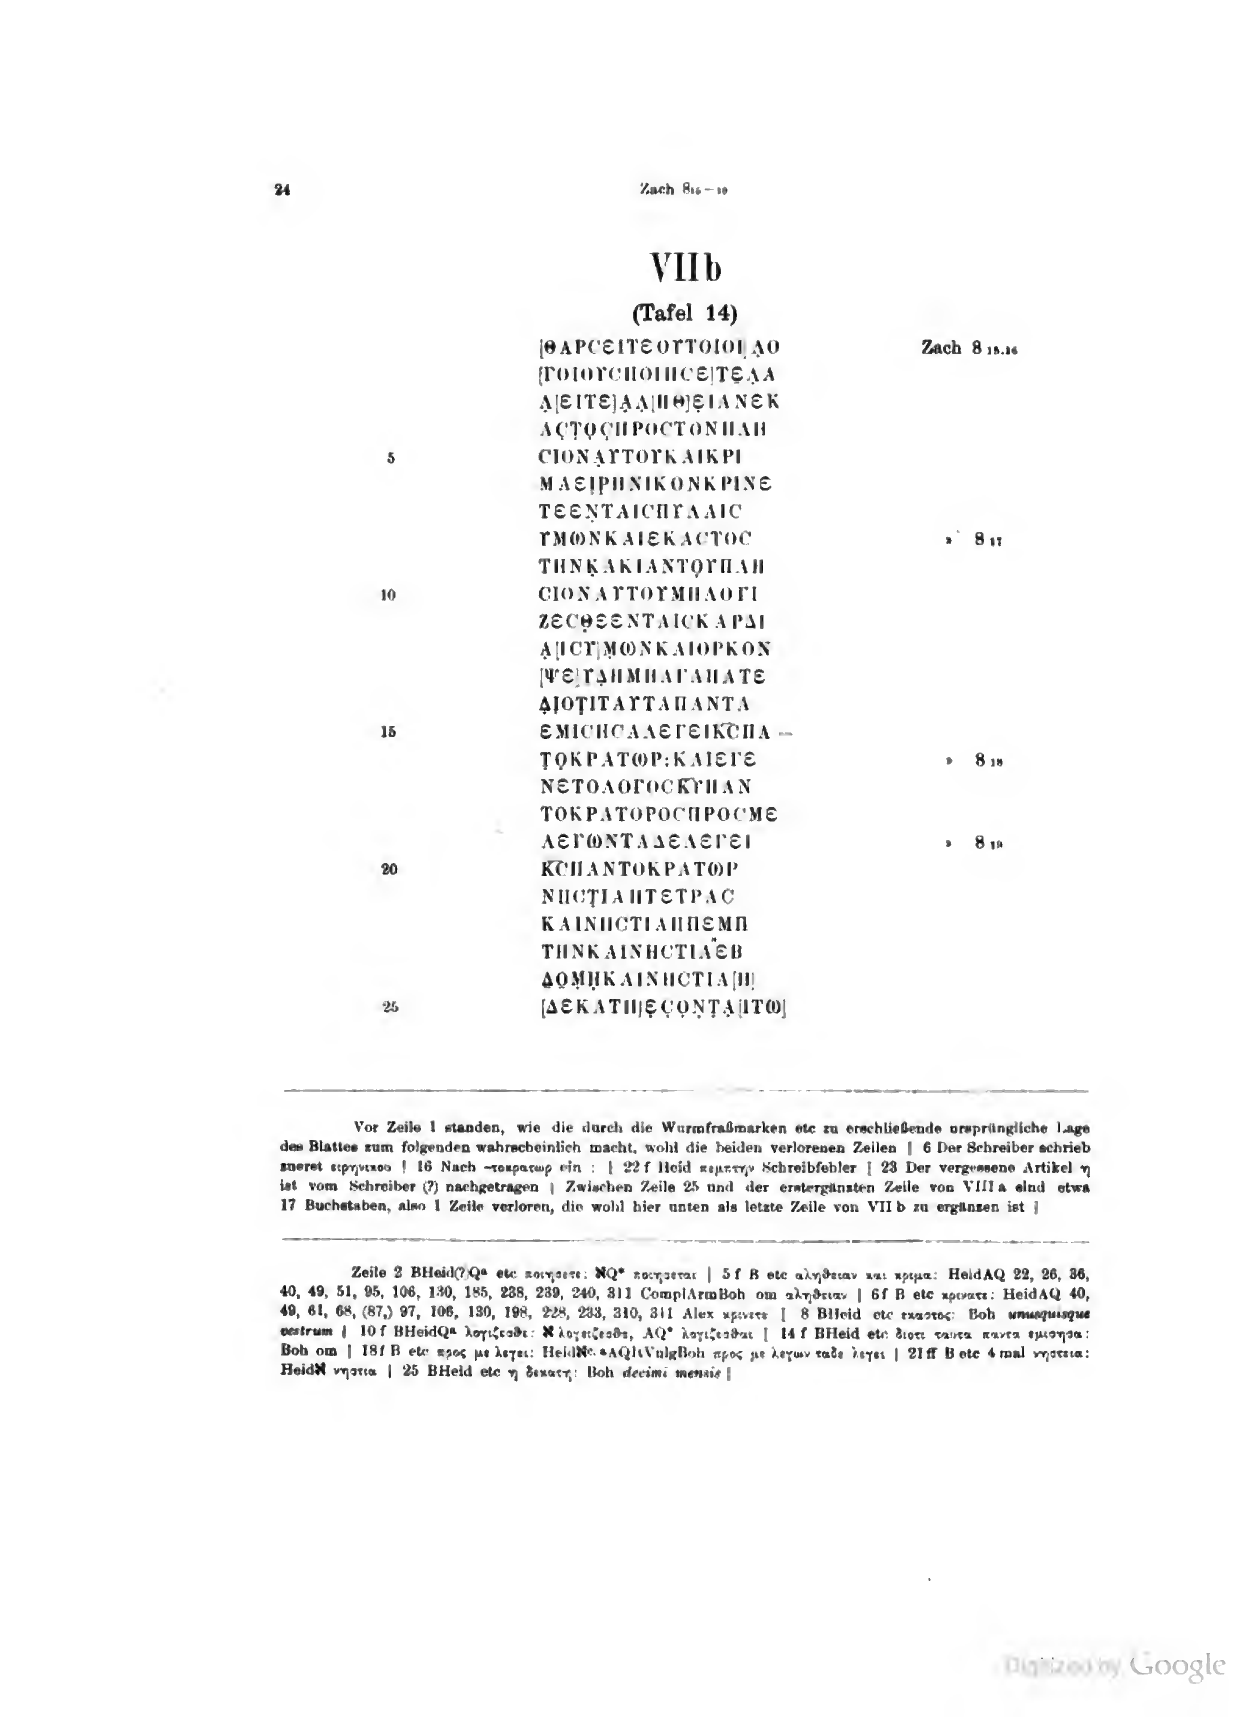 24
Zach 8₁₅–₁₉
VIIb
(Tafel 14)
[ΘΑΡϹΕΙΤΕΟΥΤΟΙΟΙ]Λ̣Ο Zach 8 ₁₅.₁₆
[ΓΟΙΟΥϹΠΟΙΗϹΕ]ΤΕ̣Λ̣Α
Λ̣[ΕΙΤΕ]Α̣Λ̣[ΗΘ]Ε̣ΙΑΝΕΚ
ΑϹ̣Τ̣Ο̣Ϲ̣ΠΡΟϹΤΟΝΠΛΗ
5 ϹΙΟΝΑ̣ΥΤΟΥΚΑΙΚΡΙ
ΜΑΕΙ̣Ρ̣ΗΝΙΚΟΝΚΡΙΝΕ
ΤΕΕΝ̣ΤΑΙϹΠΥΛΑΙϹ
ΥΜΩΝΚΑΙΕΚΑϹΤΟϹ » 8 ₁₇
ΤΗΝΚ̣ΑΚΙΑΝΤΟ̣ΥΠΛΗ
10 ϹΙΟΝΑΥΤΟΥΜΗΛΟΓΙ
ΖΕϹΘ̣ΕΕΝΤΑΙϹΚΑΡΔΙ
Α̣[ΙϹΥ]Μ̣ΩΝΚΑΙΟΡΚΟΝ
[ΨΕ]ΥΔ̣ΗΜΗΑΓΑΠΑΤΕ
Δ̣Ι̣ΟΤ̣ΙΤΑΥΤΑΠΑΝΤΑ
15 ΕΜΙϹΗϹΑΛΕΓΕΙΚ̅Ϲ̅ΠΑ –
Τ̣Ο̣ΚΡΑΤΩΡ:ΚΑΙΕΓΕ » 8 ₁₈
ΝΕΤΟΛΟΓΟϹΚ̅Υ̅ΠΑΝ
ΤΟΚΡΑΤΟΡΟϹΠΡΟϹΜΕ
ΛΕΓΩΝΤΑΔΕΛΕΓΕΙ » 8 ₁₉
20 Κ̅Ϲ̅ΠΑΝΤΟΚΡΑΤΩΡ
ΝΗϹΤ̣ΙΑΗΤΕΤΡΑϹ
ΚΑΙΝΗϹΤΙΑΗΠΕΜΠ
ΤΗΝΚΑΙΝΗϹΤΙΑᴴΕΒ
Δ̣Ο̣Μ̣Η̣ΚΑΙΝΗϹΤΙΑ[Η]
25 [ΔΕΚΑΤΗ]Ε̣Ϲ̣Ο̣Ν̣Τ̣Α̣[ΙΤΩ]
Vor Zeile 1 standen, wie die durch die Wurmfraßmarken etc zu erschließende ursprüngliche Lage
des Blattes zum folgenden wahrscheinlich macht, wohl die beiden verlorenen Zeilen | 6 Der Schreiber schrieb
zuerst ειρηνικου | 16 Nach -τοκρατωρ ein : | 22 f Heid πεμπτην Schreibfehler | 23 Der vergessene Artikel η
ist vom Schreiber (?) nachgetragen | Zwischen Zeile 25 und der erstergänzten Zeile von VIII a sind etwa
17 Buchstaben, also 1 Zeile verloren, die wohl hier unten als letzte Zeile von VII b zu ergänzen ist |
Zeile 2 BHeid(?)Qᵃ etc ποιησετε: ℵQ* ποιησεται | 5 f B etc αληθειαν και κριμα: HeidAQ 22, 26, 36,
40, 49, 51, 95, 106, 130, 185, 238, 239, 240, 311 ComplArmBoh om αληθειαν | 6f B etc κρινατε: HeidAQ 40,
49, 61, 68, (87,) 97, 106, 130, 198, 228, 233, 310, 311 Alex κρινετε | 8 BHeid etc εκαστος: Boh unusquisque
vestrum | 10 f BHeidQᵃ λογιζεσθε: ℵ λογειζεσθε, AQ* λογιζεσθαι | 14 f BHeid etc διοτι ταυτα παντα εμισησα:
Boh om | 18f B etc προς με λεγει: Heidℵᶜ·ᵃAQItVulgBoh προς με λεγων ταδε λεγει | 21ff B etc 4 mal νηστεια:
Heidℵ νηστια | 25 BHeid etc η δεκατη: Boh decimi mensis |
Digitized by Google